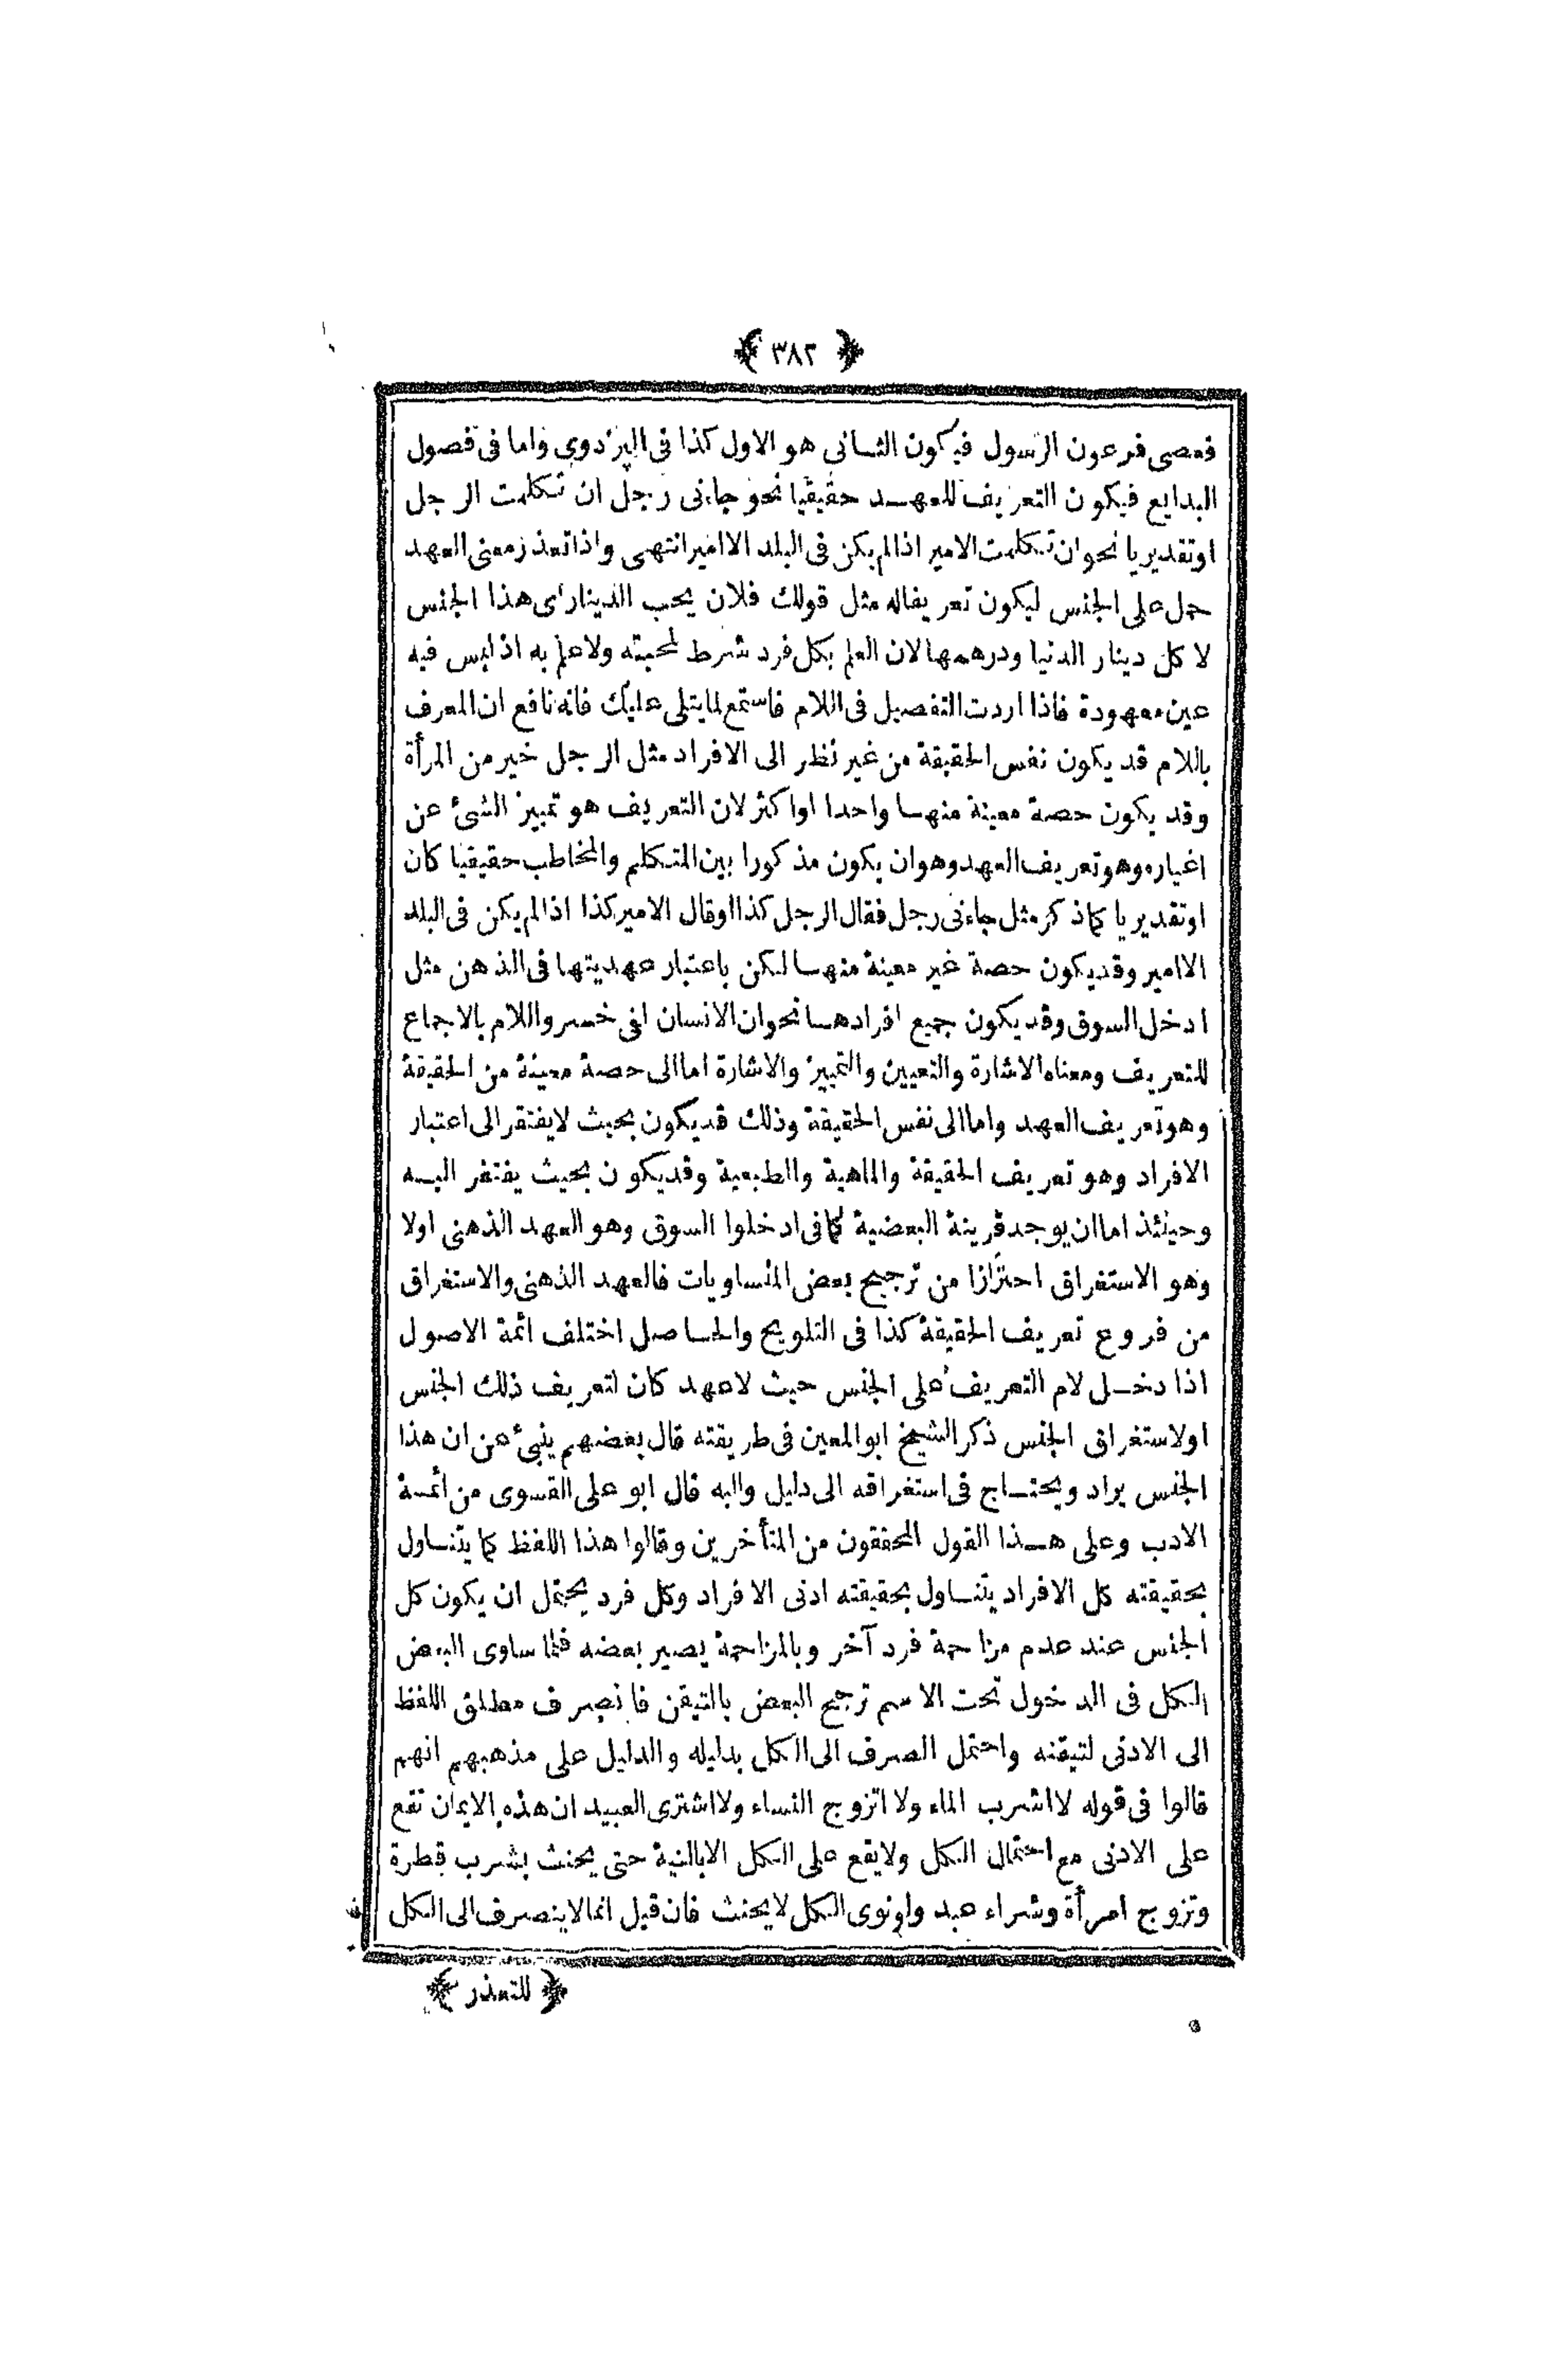 ﴿ ٣٨٢ ﴾
فعصى فرعون الرسول فيكون الثانى هو الاول كذا فى البزدوى واما فى فصول
البدايع فيكون التعريف للعهد حقيقيا نحو جاءنى رجل ان تكلمت الرجل
اوتقديريا نحو ان تكلمت الامير اذا لم يكن فى البلد الا امير انتهى واذا تعذر معنى العهد
حمل على الجنس ليكون تعريفا له مثل قولك فلان يحب الدينار اى هذا الجنس
لا كل دينار الدنيا ودرهمها لان العلم بكل فرد شرط لمحبته ولا علم به اذ ليس فيه
عين معهودة فاذا اردت التفصيل فى اللام فاستمع لما يتلى عليك فانه نافع ان المعرف
باللام قد يكون نفس الحقيقة من غير نظر الى الافراد مثل الرجل خير من المرأة
وقد يكون حصة معينة منها واحدا او اكثر لان التعريف هو تمييز الشئ عن
اغياره وهو تعريف العهد وهو ان يكون مذكورا بين المتكلم والمخاطب حقيقيا كان
اوتقديريا كما ذكر مثل جاءنى رجل فقال الرجل كذا او قال الامير كذا اذا لم يكن فى البلد
الا امير وقد يكون حصة غير معينة منها لكن باعتبار عهديتها فى الذهن مثل
ادخل السوق وقد يكون جميع افرادها نحو ان الانسان لفى خسر واللام بالاجماع
للتعريف ومعناه الاشارة والتعيين والتمييز والاشارة اما الى حصة معينة من الحقيقة
وهو تعريف العهد واما الى نفس الحقيقة وذلك قد يكون بحيث لا يفتقر الى اعتبار
الافراد وهو تعريف الحقيقة والماهية والطبيعية وقد يكون بحيث يفتقر اليه
وحينئذ اما ان يوجد قرينة البعضية كما فى ادخلوا السوق وهو العهد الذهنى اولا
وهو الاستغراق احترازا من ترجيح بعض المتساويات فالعهد الذهنى والاستغراق
من فروع تعريف الحقيقة كذا فى التلويح والحاصل اختلف ائمة الاصول
اذا دخل لام التعريف على الجنس حيث لا عهد كان لتعريف ذلك الجنس
اولاستغراق الجنس ذكر الشيخ ابوالمعين فى طريقته قال بعضهم ينبئ عن ان هذا
الجنس يراد ويحتاج فى استغراقه الى دليل واليه قال ابو على الفسوى من ائمة
الادب وعلى هذا القول المحققون من المتأخرين وقالوا هذا اللفظ كما يتناول
بحقيقته كل الافراد يتناول بحقيقته ادنى الافراد وكل فرد يحتمل ان يكون كل
الجنس عند عدم مزاحمة فرد آخر وبالمزاحمة يصير بعضه فلما ساوى البعض
الكل فى الدخول تحت الاسم ترجح البعض بالتيقن فانصرف مطلق اللفظ
الى الادنى لتيقنه واحتمل الصرف الى الكل بدليله والدليل على مذهبهم انهم
قالوا فى قوله لا اشرب الماء ولا اتزوج النساء ولا اشترى العبيد ان هذه الايمان تقع
على الادنى مع احتمال الكل ولا يقع على الكل الا بالنية حتى يحنث بشرب قطرة
وتزوج امرأة وشراء عبد ولو نوى الكل لا يحنث فان قيل انما لا ينصرف الى الكل
﴿ للتعذر ﴾